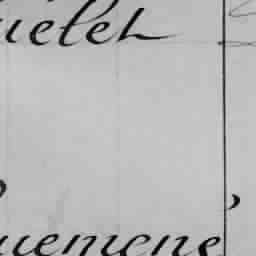 uelet
uemené